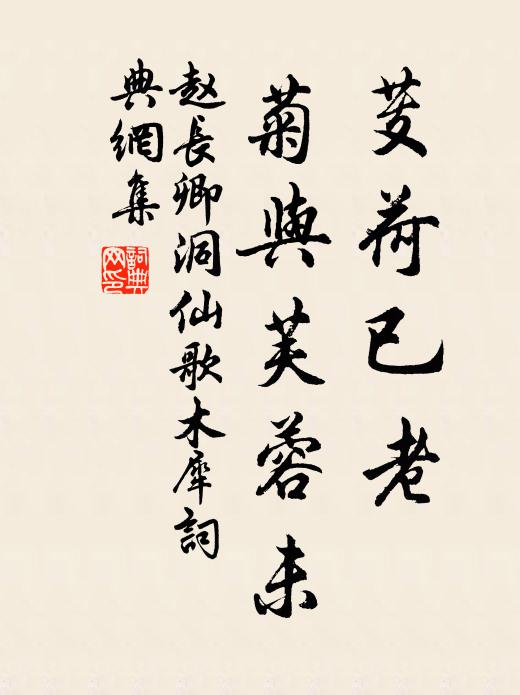 芰荷已老
菊與芙蓉未
赵長卿洞仙歌木犀詞
典網集
詞典网印